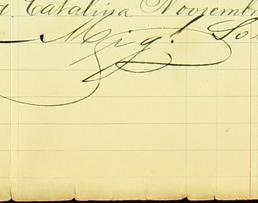 a. Catalina Noviembr
Migl. So